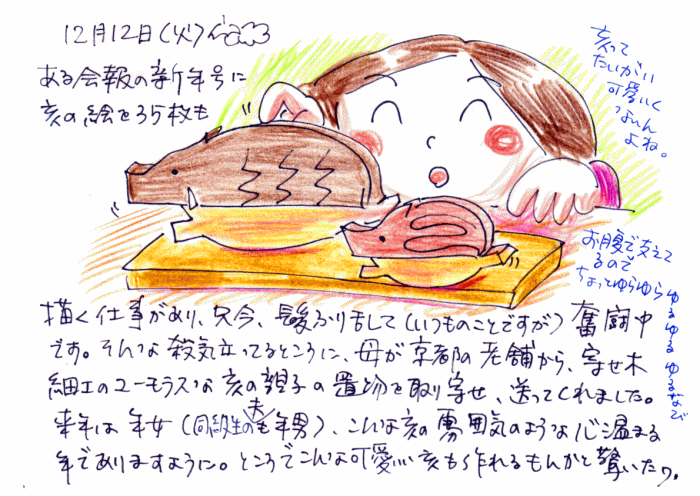 12月12日(火)
ある会報の新年号に
亥の絵を35枚も
描く仕事があり、只今、長髪ふり乱して(いつものことですが)奮闘中
です。そんな殺気立ってるところに、母が京都の老舗から、寄せ木
細工のユーモラスな亥の親子の置物を取り寄せ、送ってくれました。
来年は年女(同級生の夫も年男)、こんな亥の雰囲気のような心温まる
年でありますように。ところでこんな可愛い亥もら作れるもんかと驚いたワ。
亥って
たいがい
可愛いく
ないん
よね。
お腹で支えて
るので
ちょっとゆらゆら
ゆるゆるゆるなで